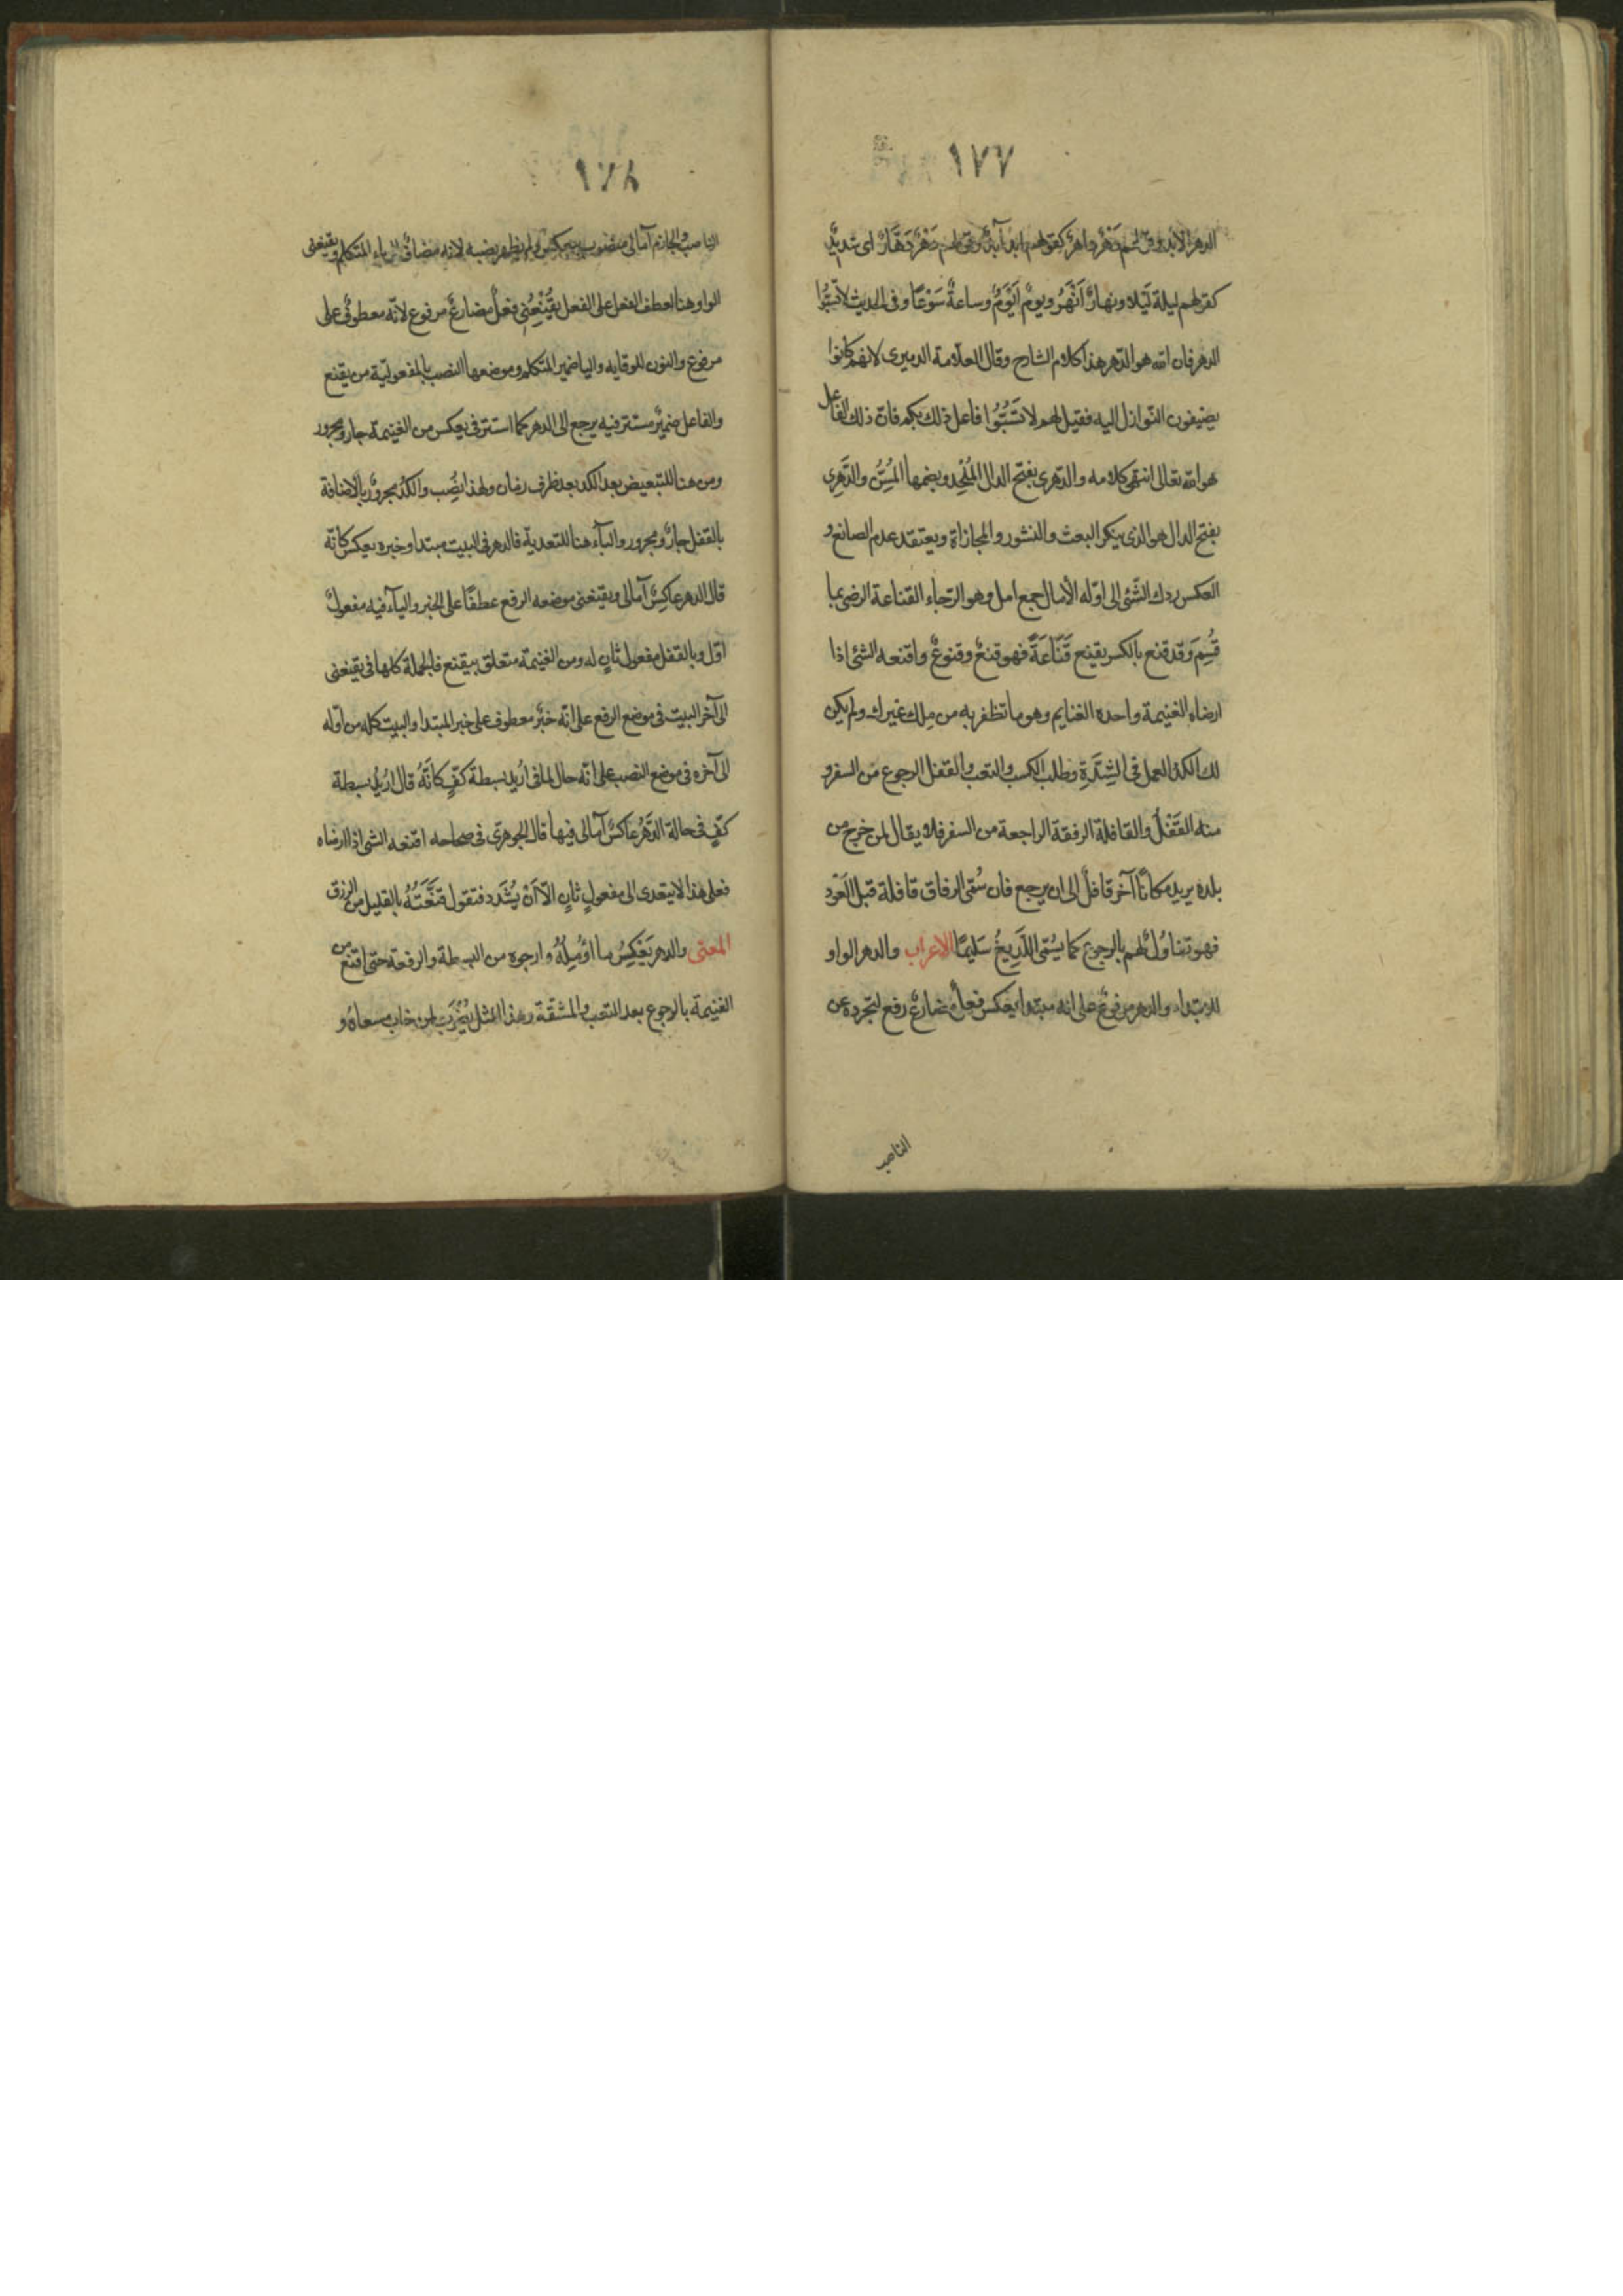 ١٧٧
الدهر الابد وقولهم دَهْرٌ داهرٌ كقولهم ابد آبدٌ وقولهم دَهْرٌ دَهَّارٌ اى شديدٌ
كقولهم ليلة لَيْلاء ونهارٌ اَنْهَرُ ويومٌ اَيْوَمُ وساعةٌ سَوْعَاء وفى الحديث لا تَسُبُّوا
الدهر فان الله هو الدّهر هذا كلام الشارح وقال العلامة الدميرى لانهم كانوا
يضيفون النّوازل اليه فقيل لهم لا تَسُبُّوا فاعل ذلك بكم فان ذلك الفاعل
هو الله تعالى انتهى كلامه والدّهرى بفتح الدال المُلْحِد وبضمها المُسِنُّ والدَّهرِى
بفتح الدال هو الذى ينكر البعث والنشور والمجازاة ويعتقد عدم الصانع و
العكس ردك الشّئ الى اوّله الأمال جمع امل وهو الرّجاء القناعة الرضى بما
قُسِمَ وقد قنع بالكسر يقنع قَنَاعَةً فهو قنعٌ وقنوعٌ واقنعه الشئ اذا
ارضاه الغنيمة واحدة الغنايم وهو ما تظفر به من مِلك غيرك ولم يكن
لك الكدّ العمل فى الشِدَّةِ وطلب الكسب والتعب والقفل الرجوع من السفر و
منه القَفْلُ والقافلة الرفقة الراجعة من السفر فلا يقال لمن خرج من
بلده يريد مكانًا آخر قافلٌ الى ان يرجع فان سُمّى الرفاق قافلة قبل العَوْد
فهو تفاوُلٌ لهم بالرجوع كما يسُمّى اللَّدِيغُ سَلِيمًا الاعراب والدهر الواو
للابتداء والدهر مرفوعٌ على انه مبتدا يعكس فعلٌ مضارعٌ رفع لتجرده عن
الناصب
١٧٨
الناصب والجازم آمالى منصوب بيعكس ولم يظهر نصبه لانه مضافٌ الى ياء المتكلم ويقنعنى
الواو هنا لعطف الفعل على الفعل يقُنْعِنُى فعلٌ مضارعٌ مرفوع لانّه معطوفٌ على
مرفوع والنون للوقاية واليا ضمير المتكلم وموضعها النصب بالمفعوليّة من يقنع
والفاعل ضميرٌ مستتر فيه يرجع الى الدهر كما استتر فى يعكس من الغنيمة جار ومجرور
ومن هنا للتبعيض بعد الكد بعد ظرف زمان ولهذا نصُب والكدّ مجرورٌ بالاضافة
بالقفل جارٌ ومجرور والبآء هنا للتعدية فالدهر فى البيت مبتدا وخبره يعكس كانّه
قال الدهر عاكسٌ آمالى ويقنعنى موضعه الرفع عطفًا على الخبر والياء فيه مفعولٌ
اوّل وبالقفل مفعول ثانٍ له ومن الغنيمة متعلق بيقنع فالجملة كلها فى يقنعنى
الى آخر البيت فى موضع الرفع على انّه خبرٌ معطوف على خبر المبتدا والبيت كله من اوّله
الى آخره فى موضع النصب على انّه حال لما فى اريد بسطة كفٍّ كانَّهُ قال اريد بسطة
كفٍّ فى حالة الدَّهْرُ عاكسٌ آمالى فيها قال الجوهرى فى صحاحه اقنعه الشى اذا ارضاه
فعلى هذا لا يتعدى الى مفعولٍ ثانٍ الّا اَنْ يُشَدَّد فتقول قنَّعْتُهُ بالقليل من الرزق
المعنى والدهر يَعْكِسُ ما اؤمِلُهُ وارجوه من البسطة والرفعة حتى اقنع من
الغنيمة بالرجوع بعد التعب والمشقة وهذا المثل يُضْرَب لمن خاب مسعاهُ و